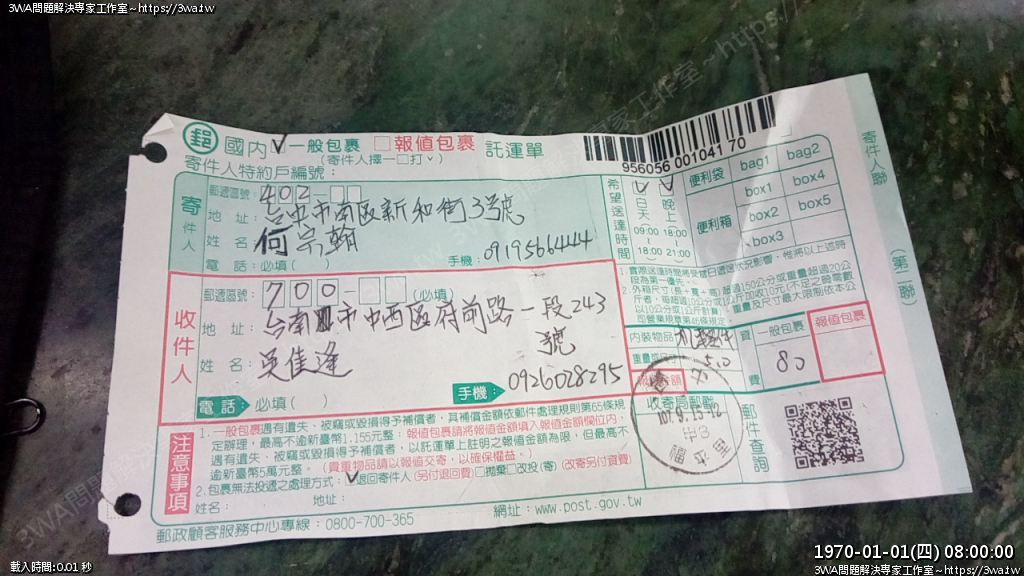 3WA問題解決專家工作室~https://3wa.tw
3WA問題解決專家工作室~https://3wa.tw
郵 國內 一般包裹 報值包裹 託運單
(寄件人擇一□打ˇ)
寄件人特約戶編號：
956056 001041 70
寄件人聯
(第二聯)
寄件人
郵遞區號：402-
地 址：台中市南區新和街3號
姓 名：何宗翰
電 話：必填( ) 手機：0919566444
希望送達時間
白天 晚上
09:00 18:00
18:00 21:00
便利袋 bag1 bag2
便利箱 box1 box4
box2 box5
box3
收件人
郵遞區號：700- (必填)
地 址：台南市中西區府前路一段243
號
姓 名：吳佳達
手機：0926028295
電話：必填( )
內裝物品
資費
一般包裹 報值包裹
80
郵件查詢
注意事項
1.一般包裹遇有遺失、被竊或毀損得予補償者，其補償金額依郵件處理規則第65條規
定辦理，最高不逾新臺幣1,155元整；報值包裹請將報值金額填入報值金額欄位內，
遇有遺失、被竊或毀損得予補償者，以託運單上註明之報值金額為限，但最高不
逾新臺幣5萬元整。(貴重物品請以報值交寄，以確保權益。)
2.包裹無法投遞之處理方式：退回寄件人(另付退回費)□拋棄□改投(寄)(改寄另付資費)
姓名： 地址：
郵政顧客服務中心專線：0800-700-365 網址：www.post.gov.tw
載入時間:0.01 秒
1970-01-01(四) 08:00:00
3WA問題解決專家工作室~https://3wa.tw